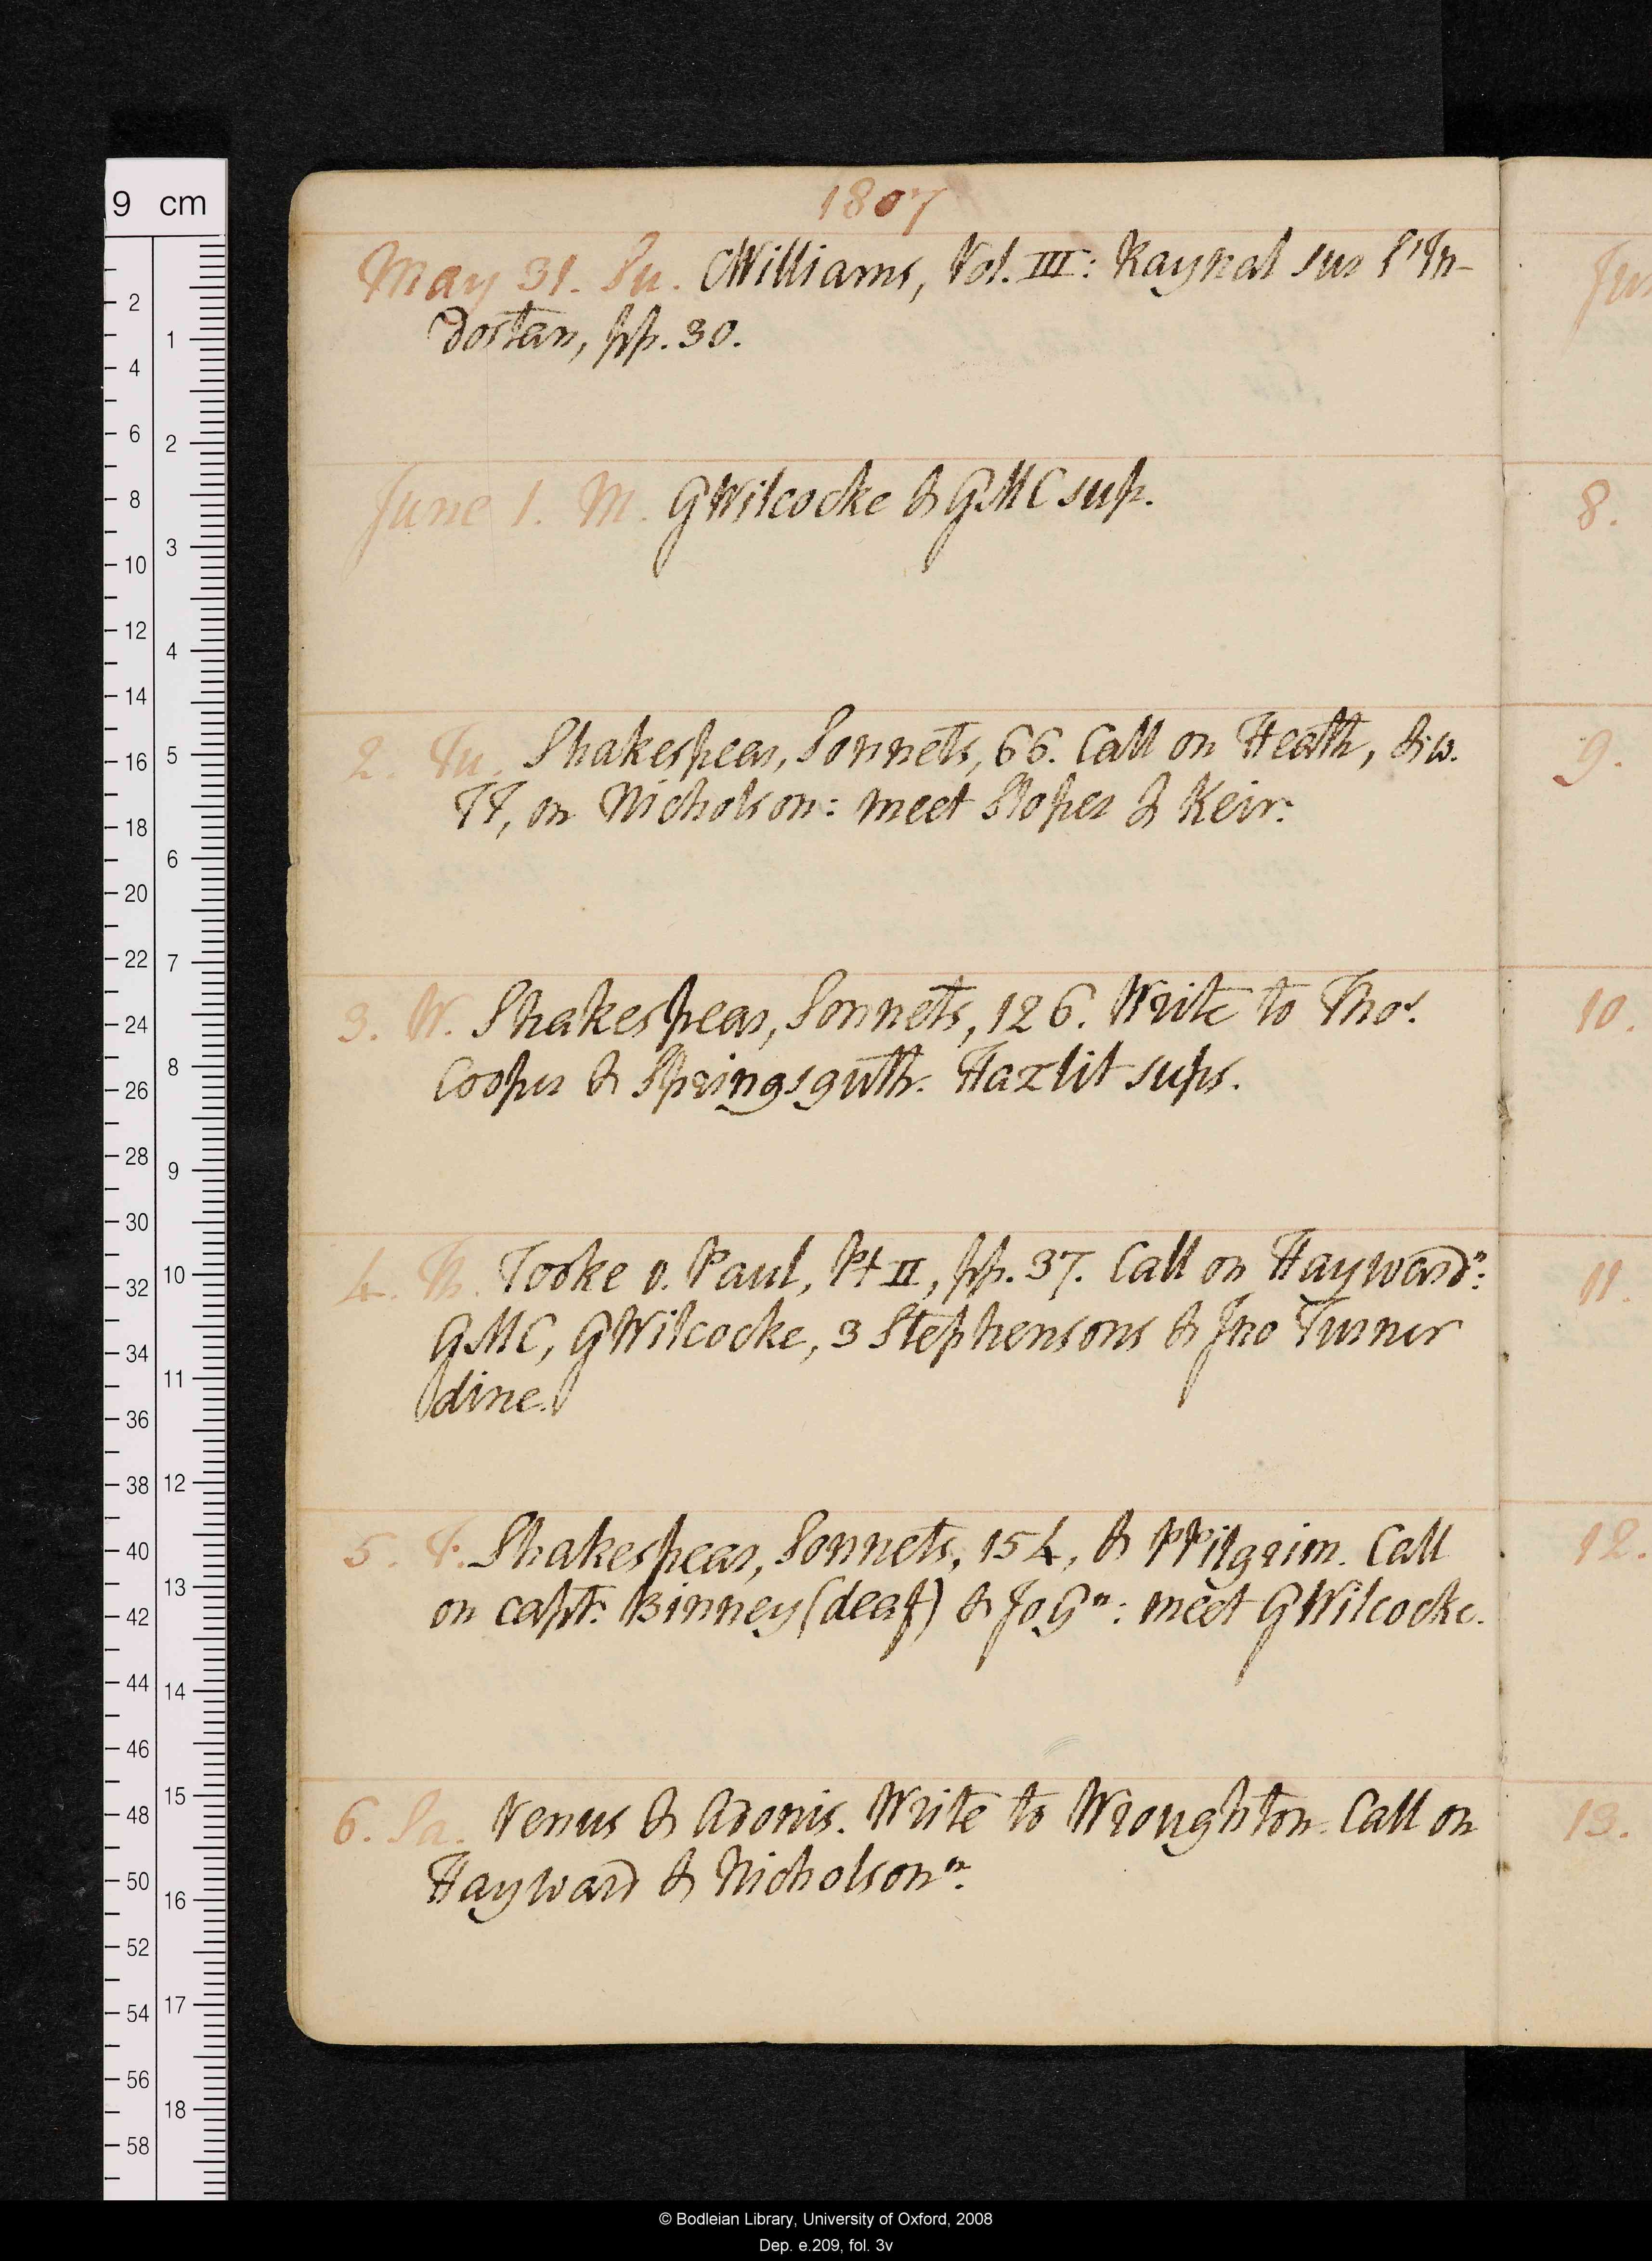 1807
May 31. Su. CWilliams, Vol. III: Raynal sur l'In-
dostan, pp. 30.
June 1. M. GWilcocke & GMC sup.
2. Tu. Shakespear, Sonnets, 66. Call on Heath, & w.
TT, on Nicholson: meet Stoper & Keir:
3. W. Shakespear, Sonnets, 126. Write to Thos.
Cooper & Springsguth. Hazlit sups.
4. Th. Tooke v. Paul, Pt II, pp. 37. Call on Haywardn:
GMC, GWilcocke, 3 Stephensons & Jno Turner
dine.
5. F. Shakespear, Sonnets, 154, & PPilgrim. Call
on capt. Binney (deaf) & JoGn: meet GWilcocke.
6. Sa. Venus & Adonis. Write to Wroughton. Call on
Hayward & Nicholsonn.
8.
9.
10.
11.
12.
13.
9 cm
2
4
6
8
10
12
14
16
18
20
22
24
26
28
30
32
34
36
38
40
42
44
46
48
50
52
54
56
58
1
2
3
4
5
6
7
8
9
10
11
12
13
14
15
16
17
18
© Bodleian Library, University of Oxford, 2008
Dep. e.209, fol. 3v